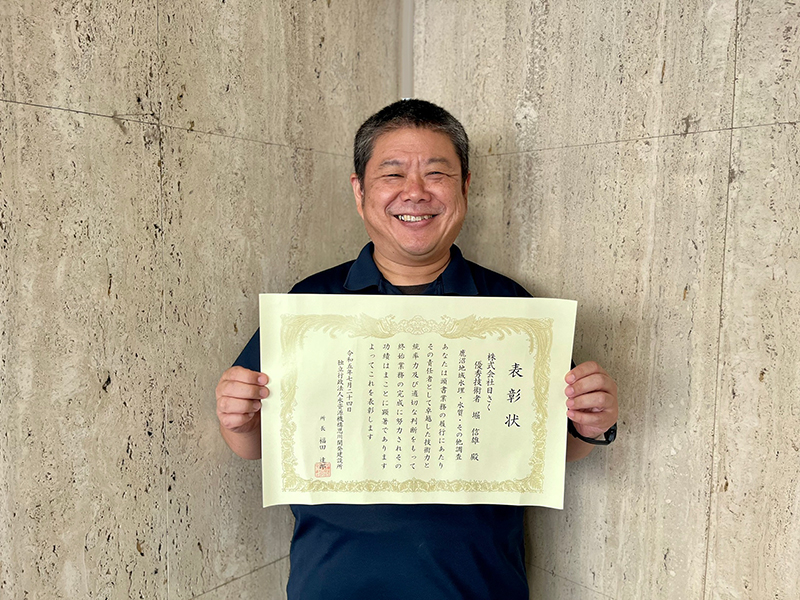 表彰状
株式会社日さく
優秀技術者 堀 信雄 殿
鹿沼地域水理・水質・その他調査
あなたは頭書業務の履行にあたり
その責任者として卓越した技術力と
統率力及び適切な判断をもって
終始業務の完成に努力されその
功績はまことに顕著であります
よってこれを表彰します
令和五年七月二十四日
独立行政法人水資源機構思川開発建設所
所長 福田 達郎